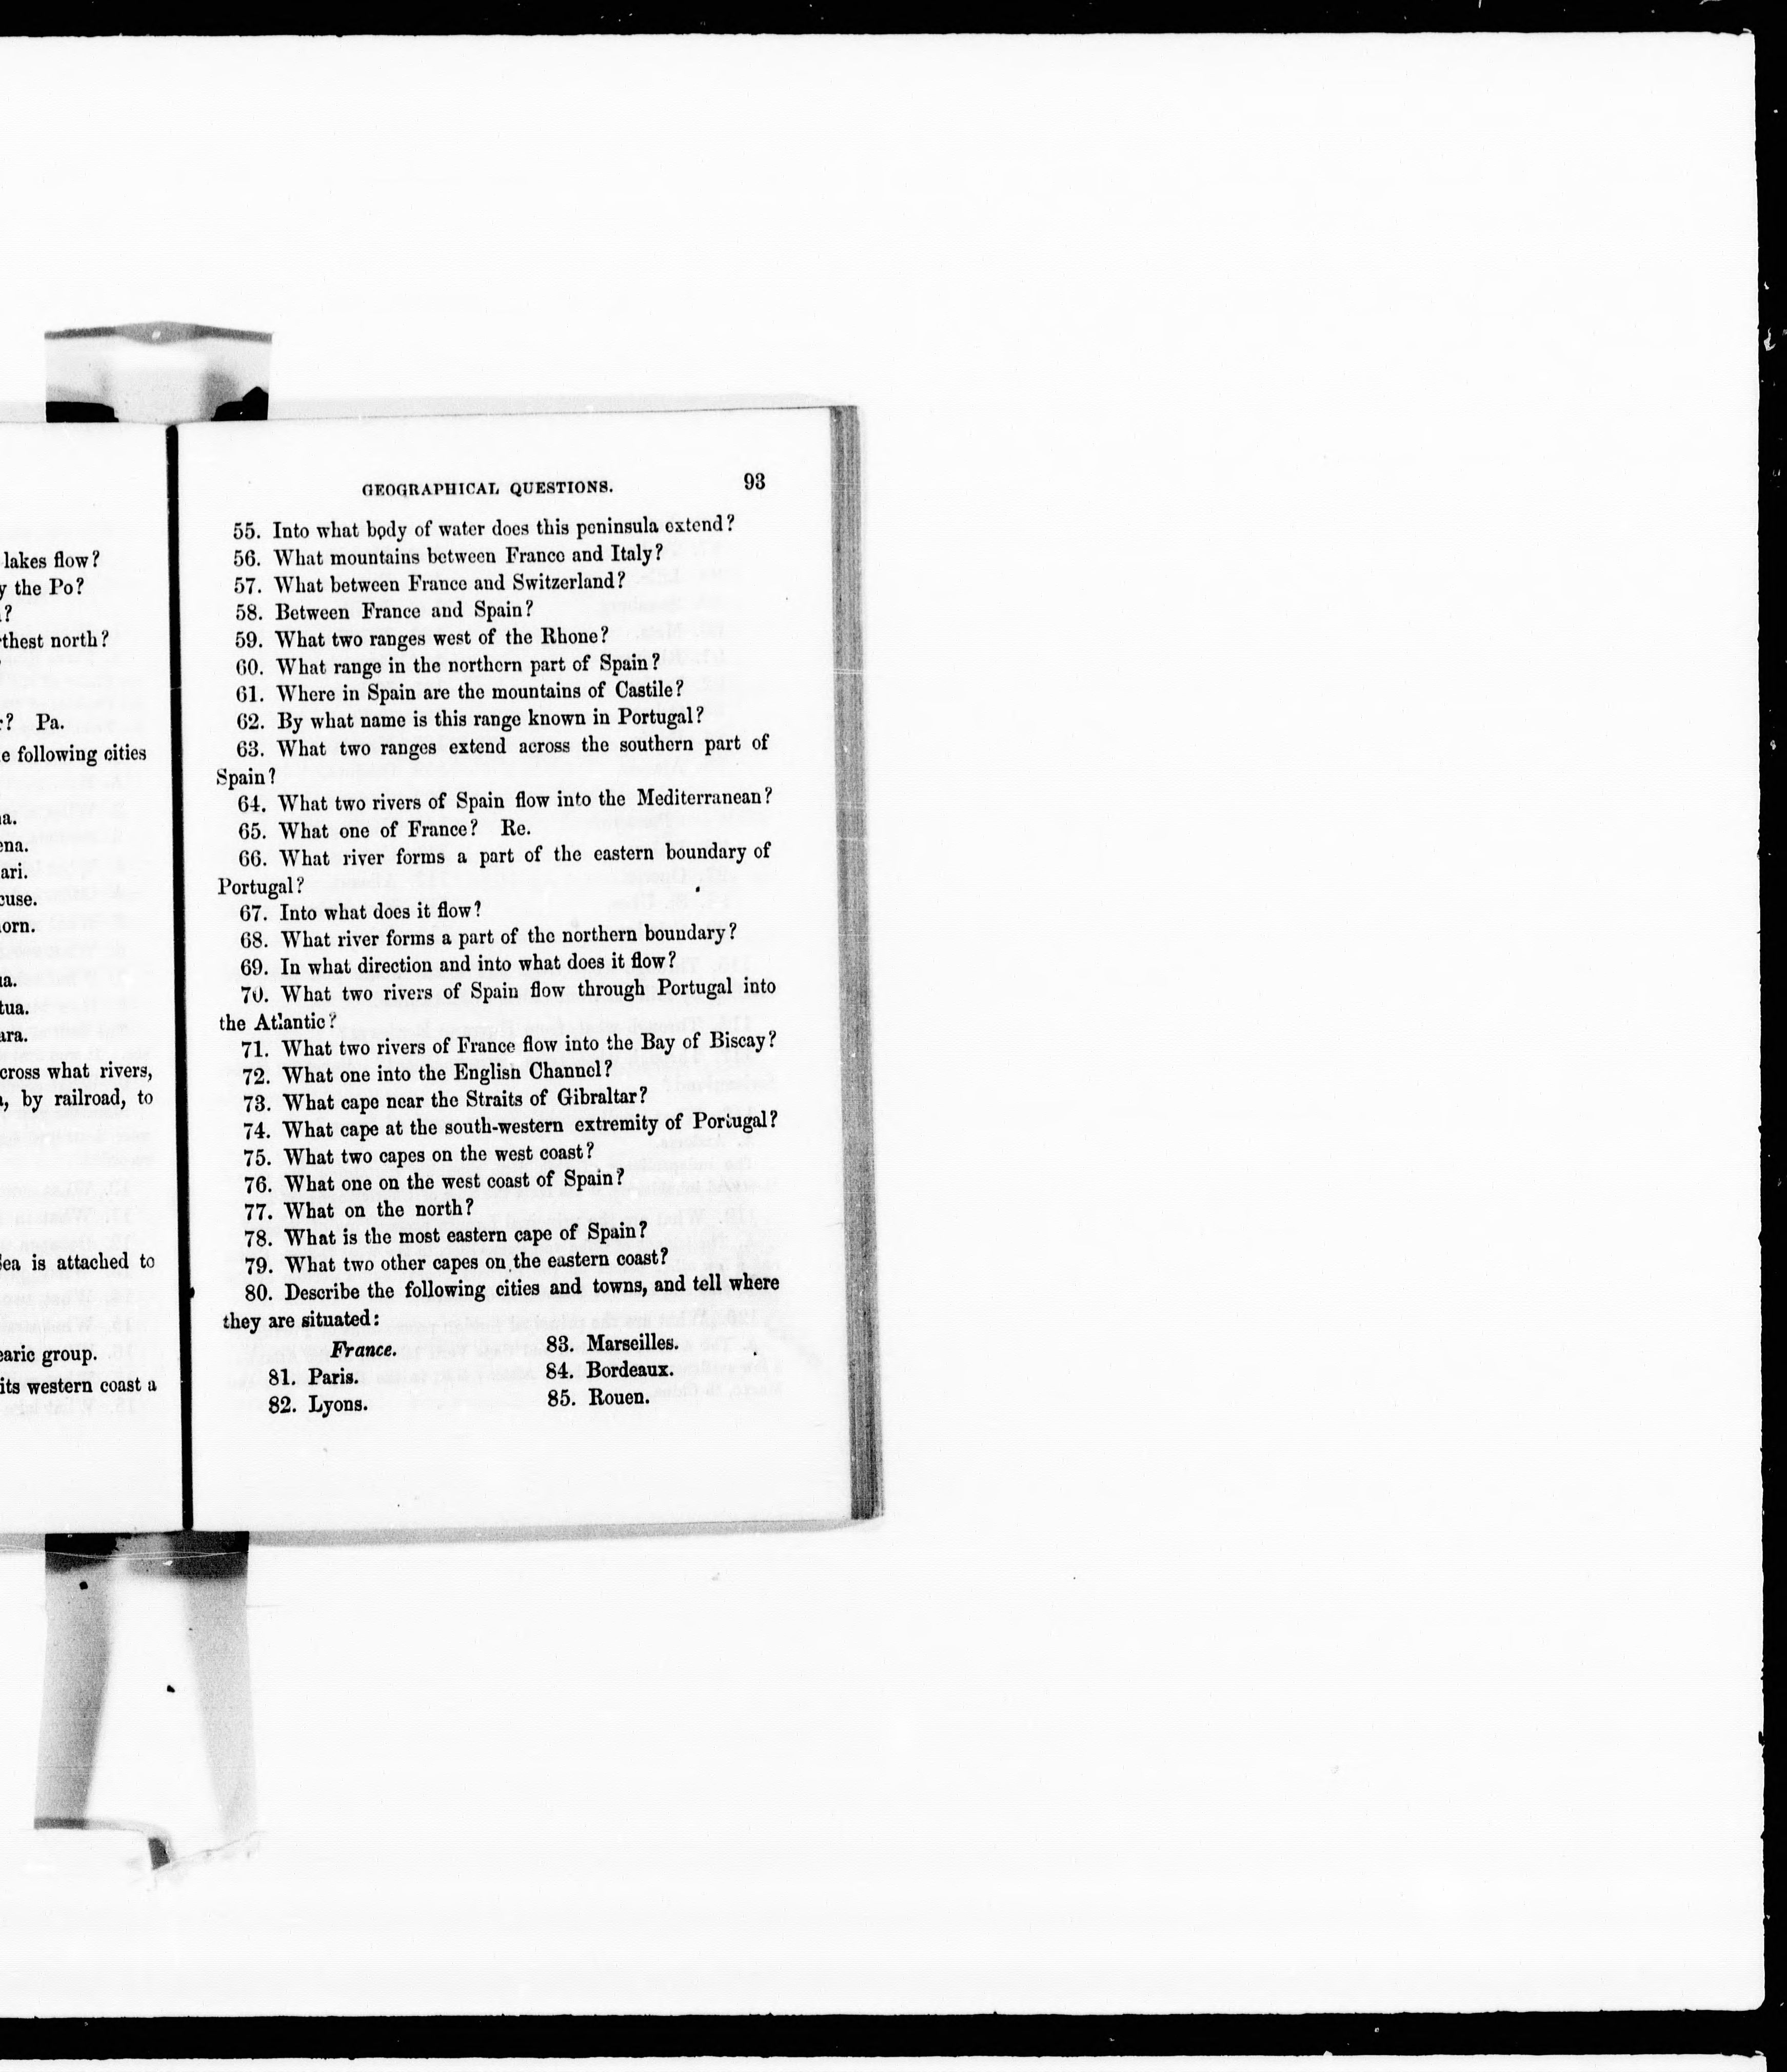 lakes flow?
the Po?
thest north?
? Pa.
following cities
cross what rivers,
by railroad, to
is attached to
group.
its western coast a
GEOGRAPHICAL QUESTIONS. 93
55. Into what body of water does this peninsula extend?
56. What mountains between France and Italy?
57. What between France and Switzerland?
58. Between France and Spain?
59. What two ranges west of the Rhone?
60. What range in the northern part of Spain?
61. Where in Spain are the mountains of Castile?
62. By what name is this range known in Portugal?
63. What two ranges extend across the southern part of
Spain?
64. What two rivers of Spain flow into the Mediterranean?
65. What one of France? Re.
66. What river forms a part of the eastern boundary of
Portugal?
67. Into what does it flow?
68. What river forms a part of the northern boundary?
69. In what direction and into what does it flow?
70. What two rivers of Spain flow through Portugal into
the Atlantic?
71. What two rivers of France flow into the Bay of Biscay?
72. What one into the English Channel?
73. What cape near the Straits of Gibraltar?
74. What cape at the south-western extremity of Portugal?
75. What two capes on the west coast?
76. What one on the west coast of Spain?
77. What on the north?
78. What is the most eastern cape of Spain?
79. What two other capes on the eastern coast?
80. Describe the following cities and towns, and tell where
they are situated:
France.
81. Paris.
82. Lyons.
83. Marseilles.
84. Bordeaux.
85. Rouen.